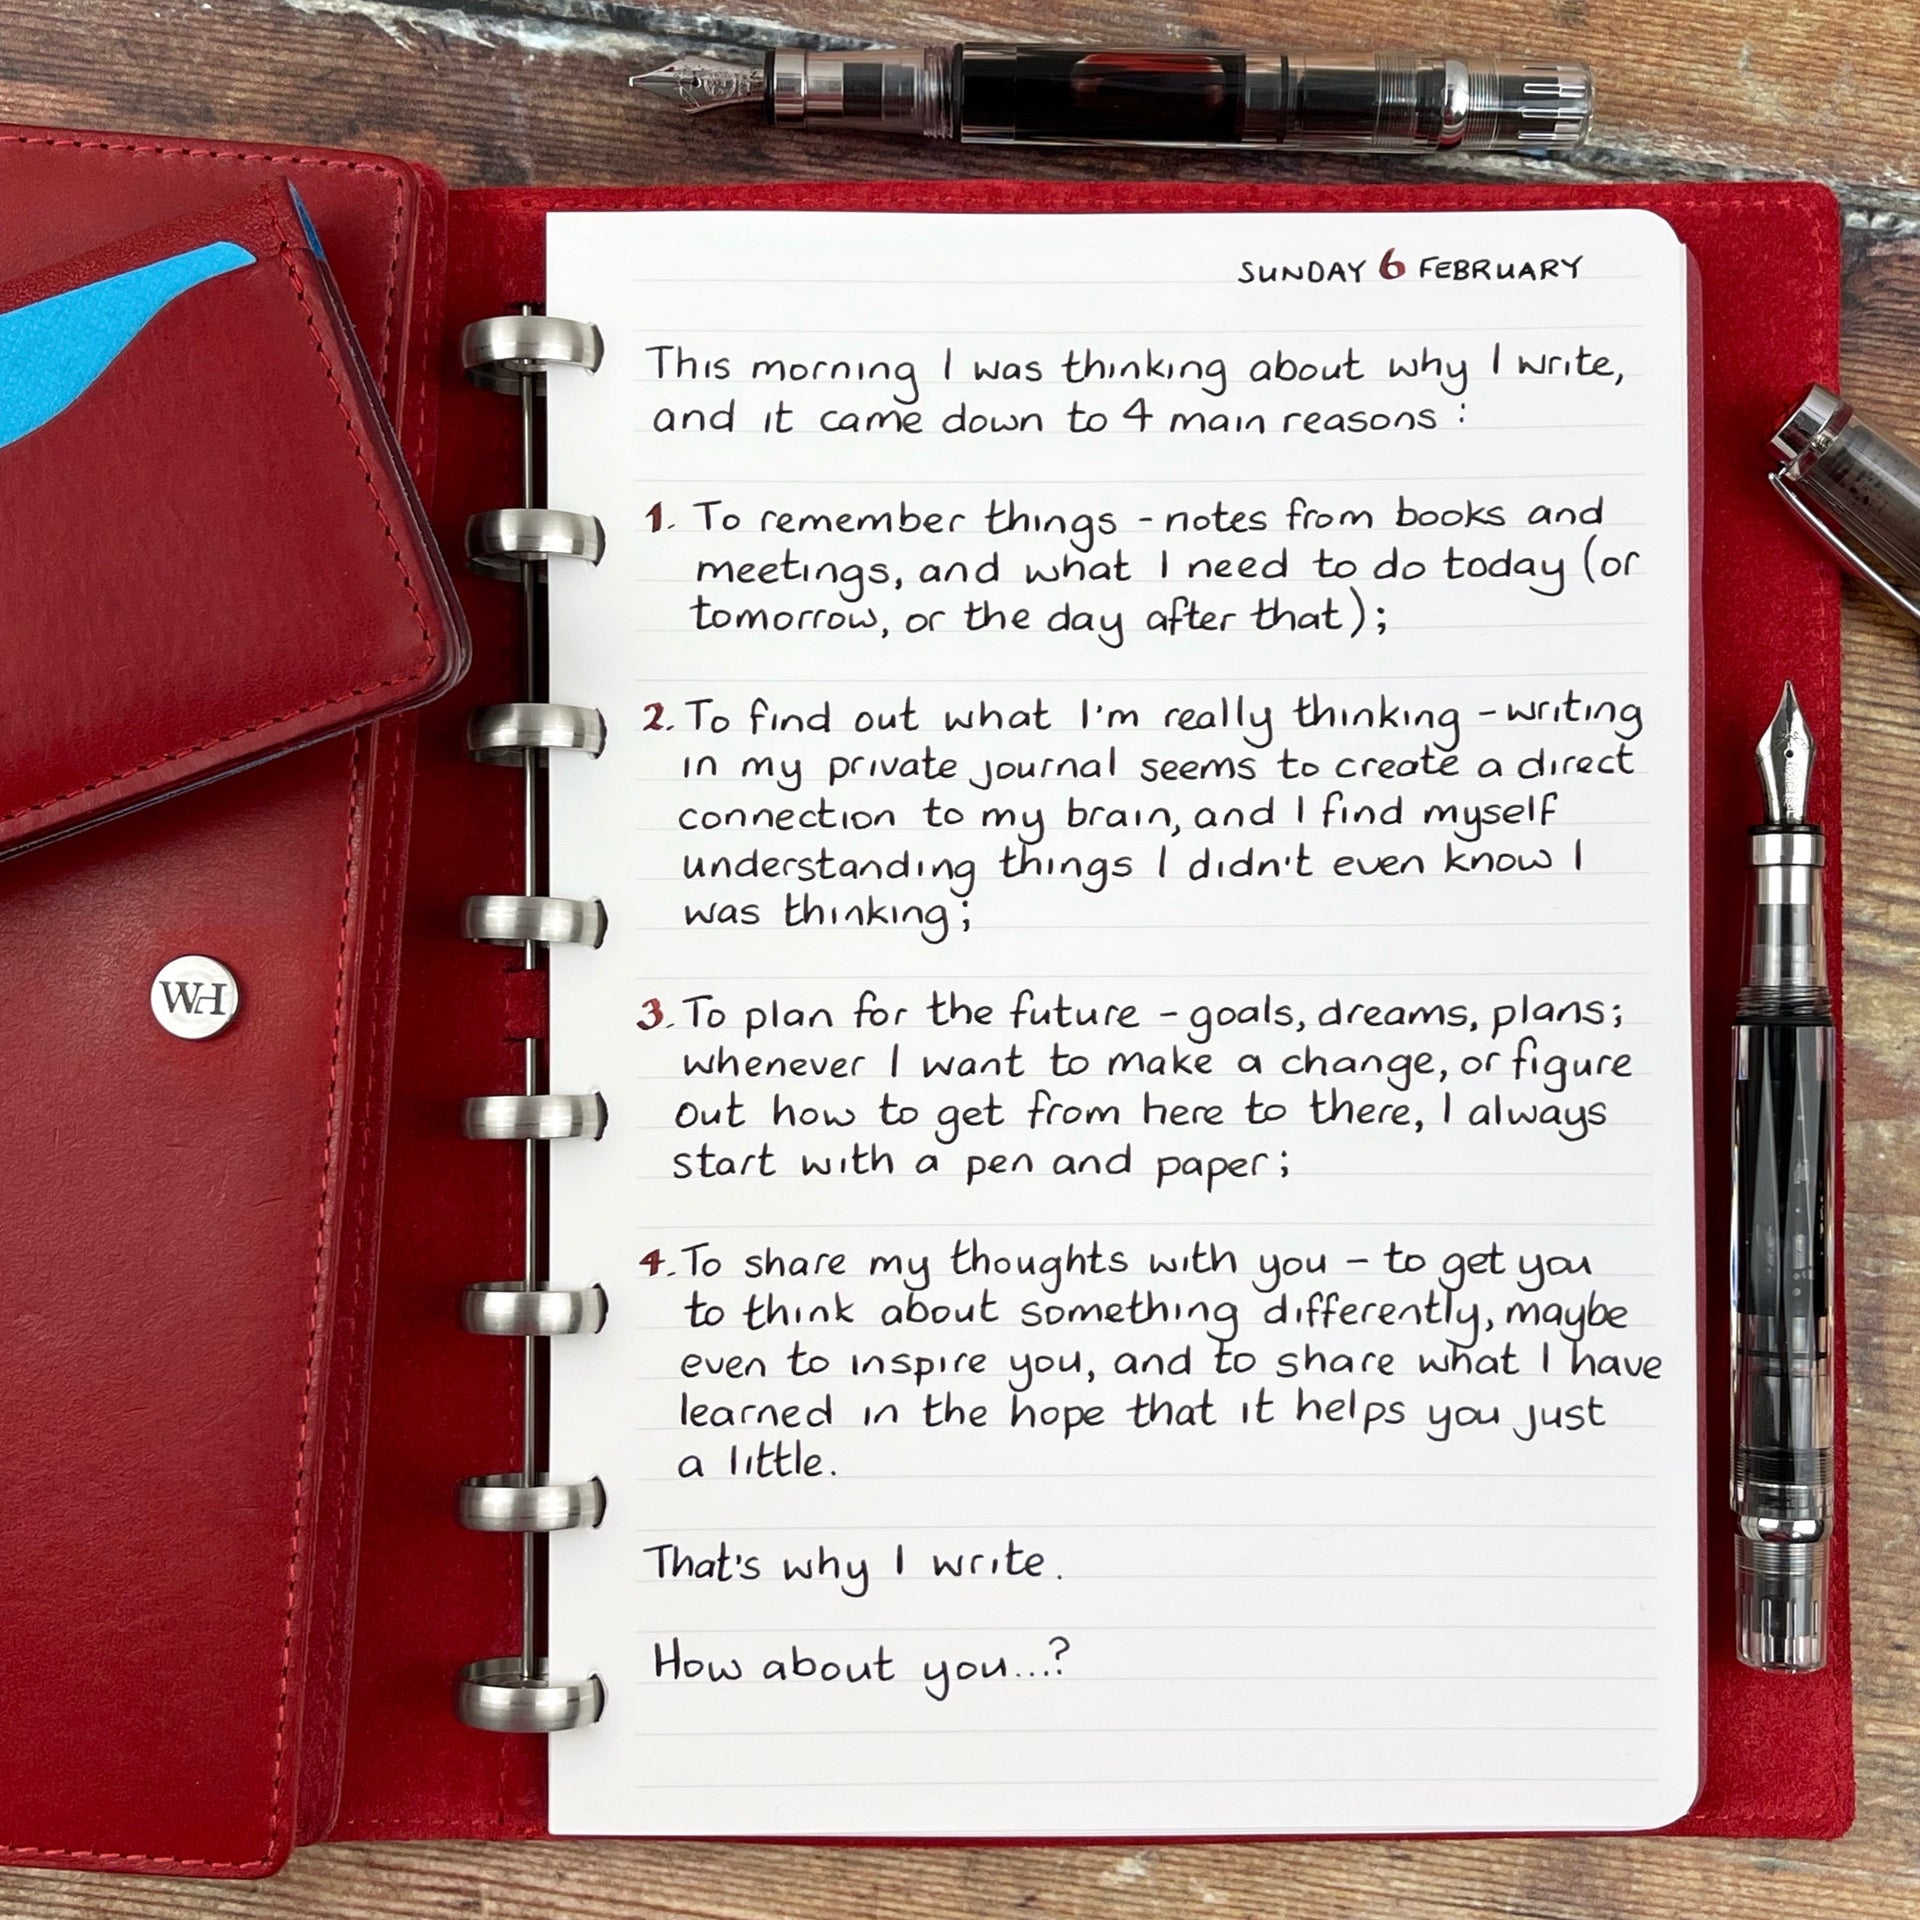 SUNDAY 6 FEBRUARY
This morning I was thinking about why I write,
and it came down to 4 main reasons:
1. To remember things - notes from books and
meetings, and what I need to do today (or
tomorrow, or the day after that);
2. To find out what I'm really thinking - writing
in my private journal seems to create a direct
connection to my brain, and I find myself
understanding things I didn't even know I
was thinking;
3. To plan for the future - goals, dreams, plans;
whenever I want to make a change, or figure
out how to get from here to there, I always
start with a pen and paper;
4. To share my thoughts with you - to get you
to think about something differently, maybe
even to inspire you, and to share what I have
learned in the hope that it helps you just
a little.
That's why I write.
How about you...?
WH